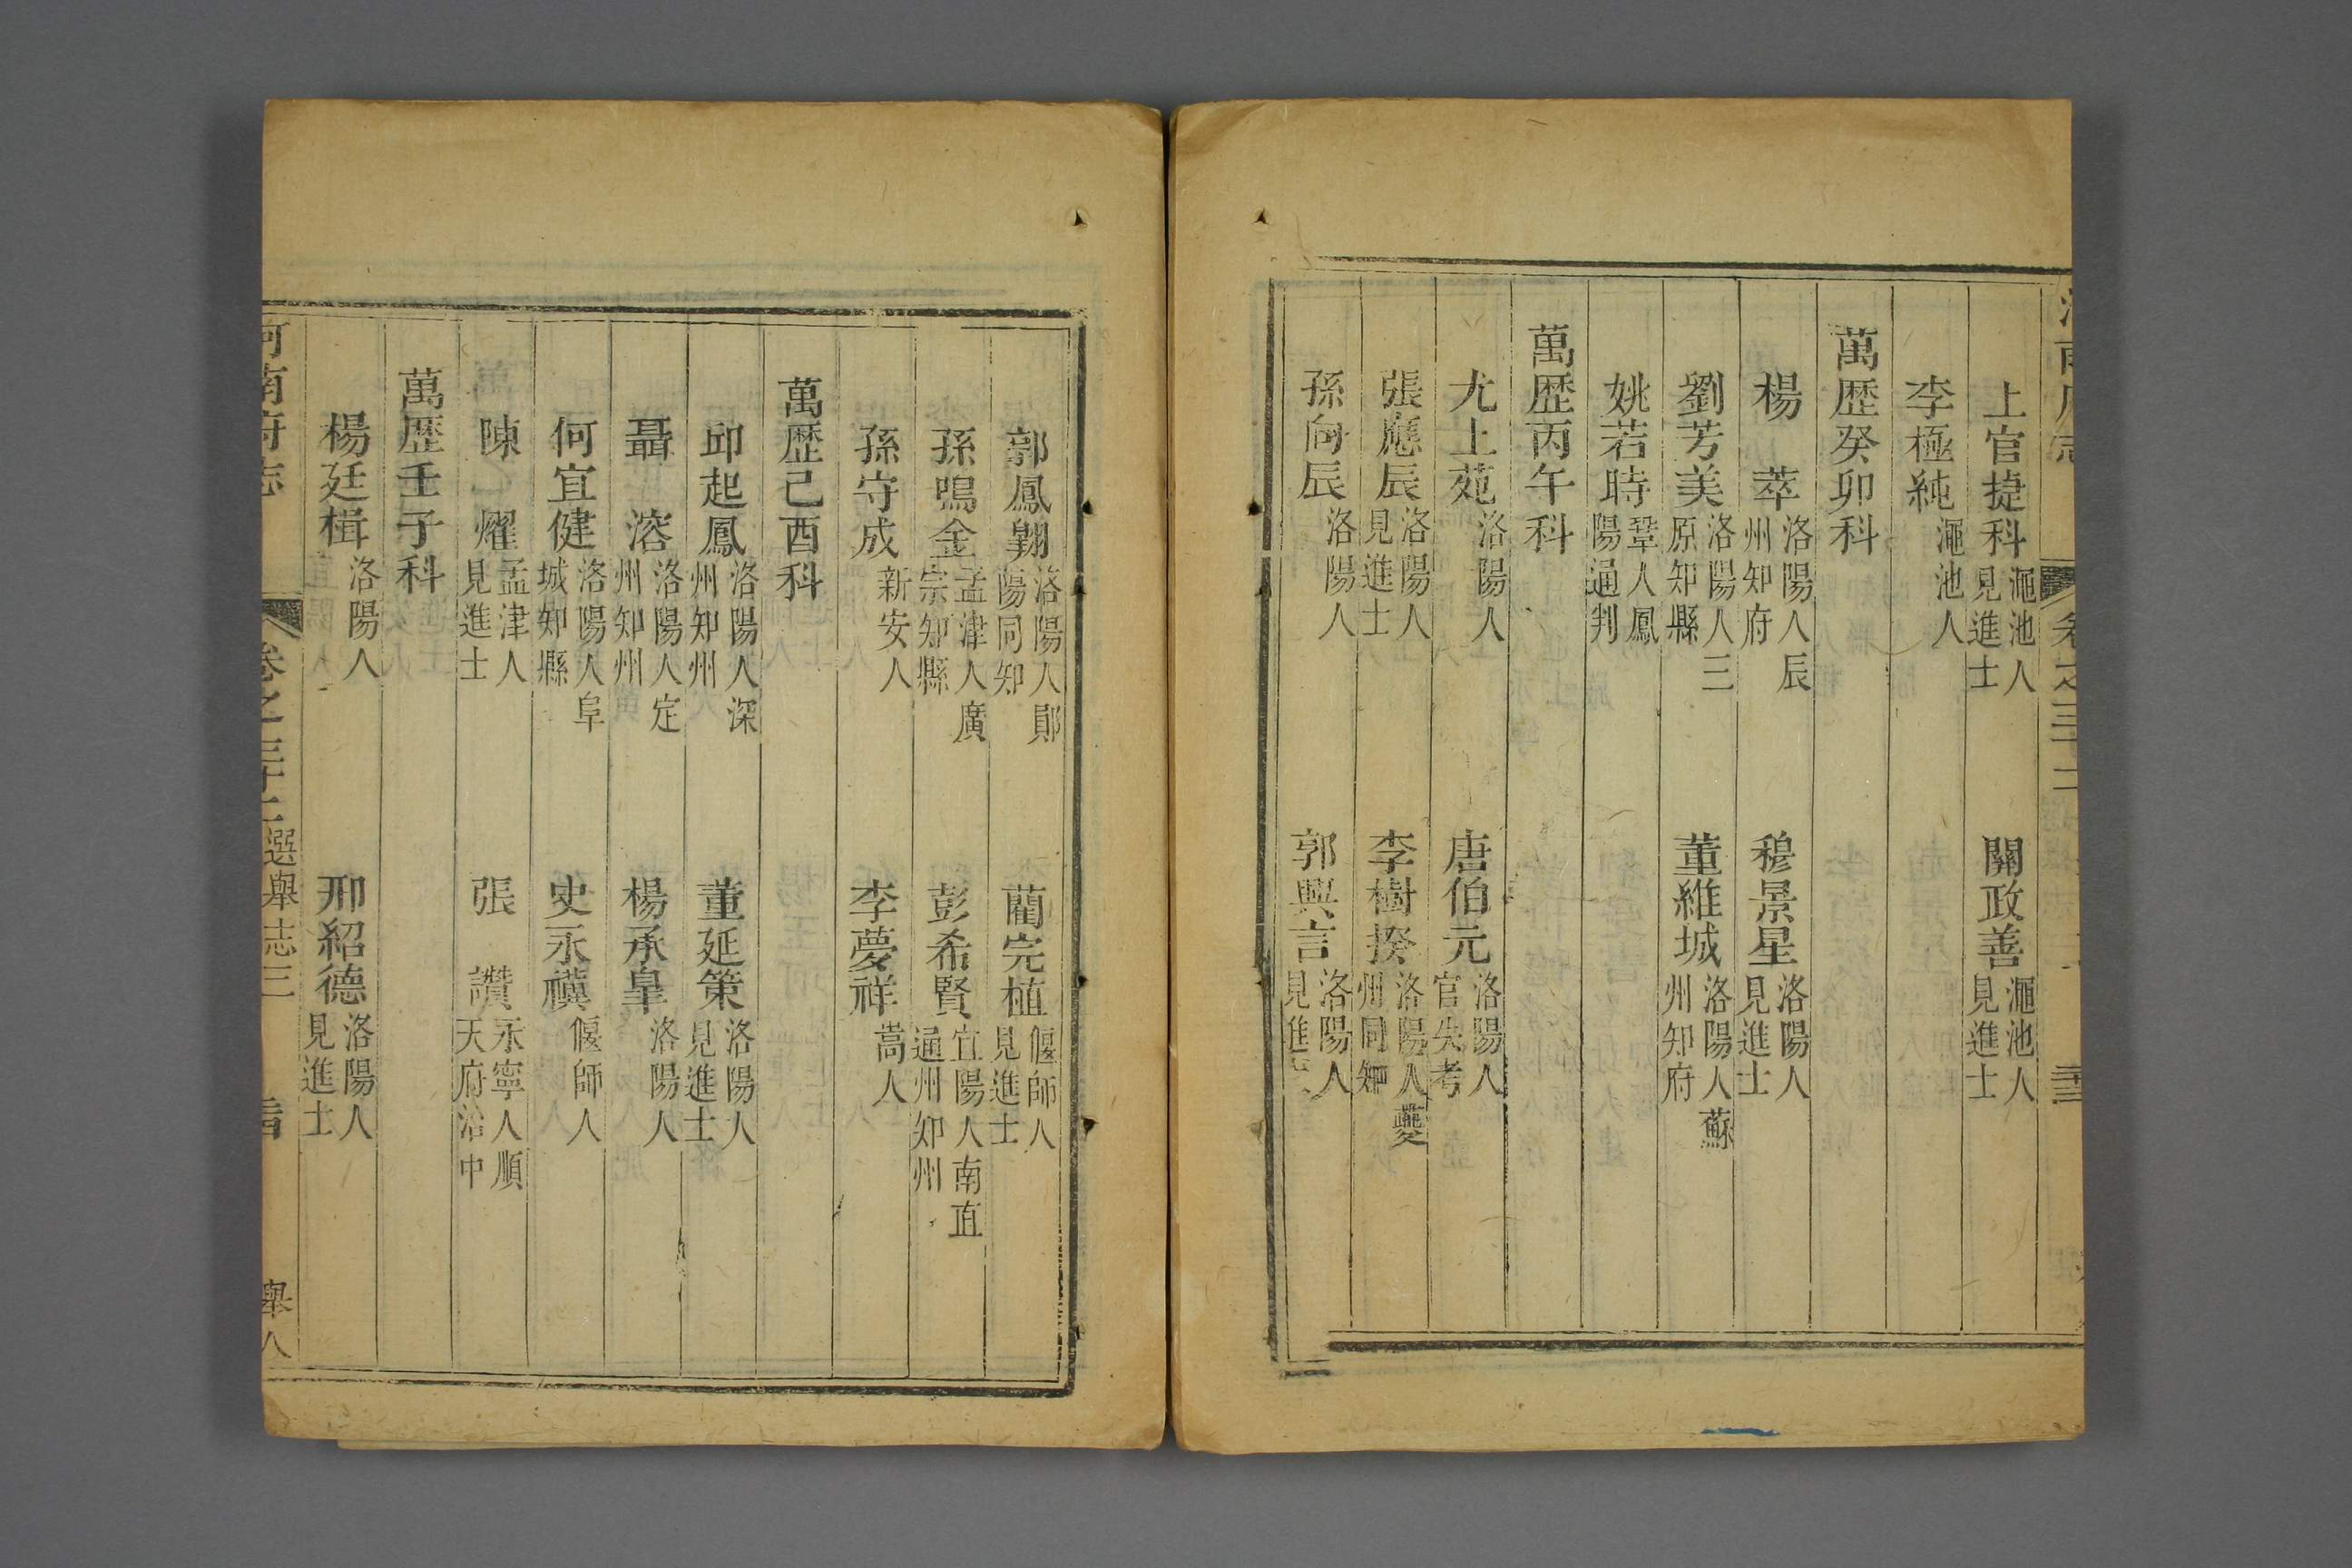 上官捷科 澠池人見進士 關政善 澠池人見進士
李極純 澠池人
萬歷癸卯科
楊 萃 洛陽人辰州知府 穆景星 洛陽人見進士
劉芳美 洛陽人三原知縣 董維城 洛陽人蘇州知府
姚若時 鞏人鳳陽通判
萬歷丙午科
尤上苑 洛陽人 唐伯元 洛陽人官失考
張應辰 洛陽人見進士 李樹揆 洛陽人夔州同知
孫向辰 洛陽人 郭興言 洛陽人見進士
郭鳳翺 洛陽人鄖陽同知 藺完植 偃師人見進士
孫鳴金 孟津人廣宗知縣 彭希賢 宜陽人南直通州知州
孫守成 新安人 李夢祥 嵩人
萬歷己酉科
邱起鳳 洛陽人深州知州 董延策 洛陽人見進士
聶 溶 洛陽人定州知州 楊承皐 洛陽人
何宜健 洛陽人阜城知縣 史永禩 偃師人
陳 燿 孟津人見進士 張 讚 永寧人順天府治中
萬歷壬子科
楊廷楫 洛陽人 邢紹德 洛陽人見進士
河南府志 卷之三十二 選舉志三 舉人